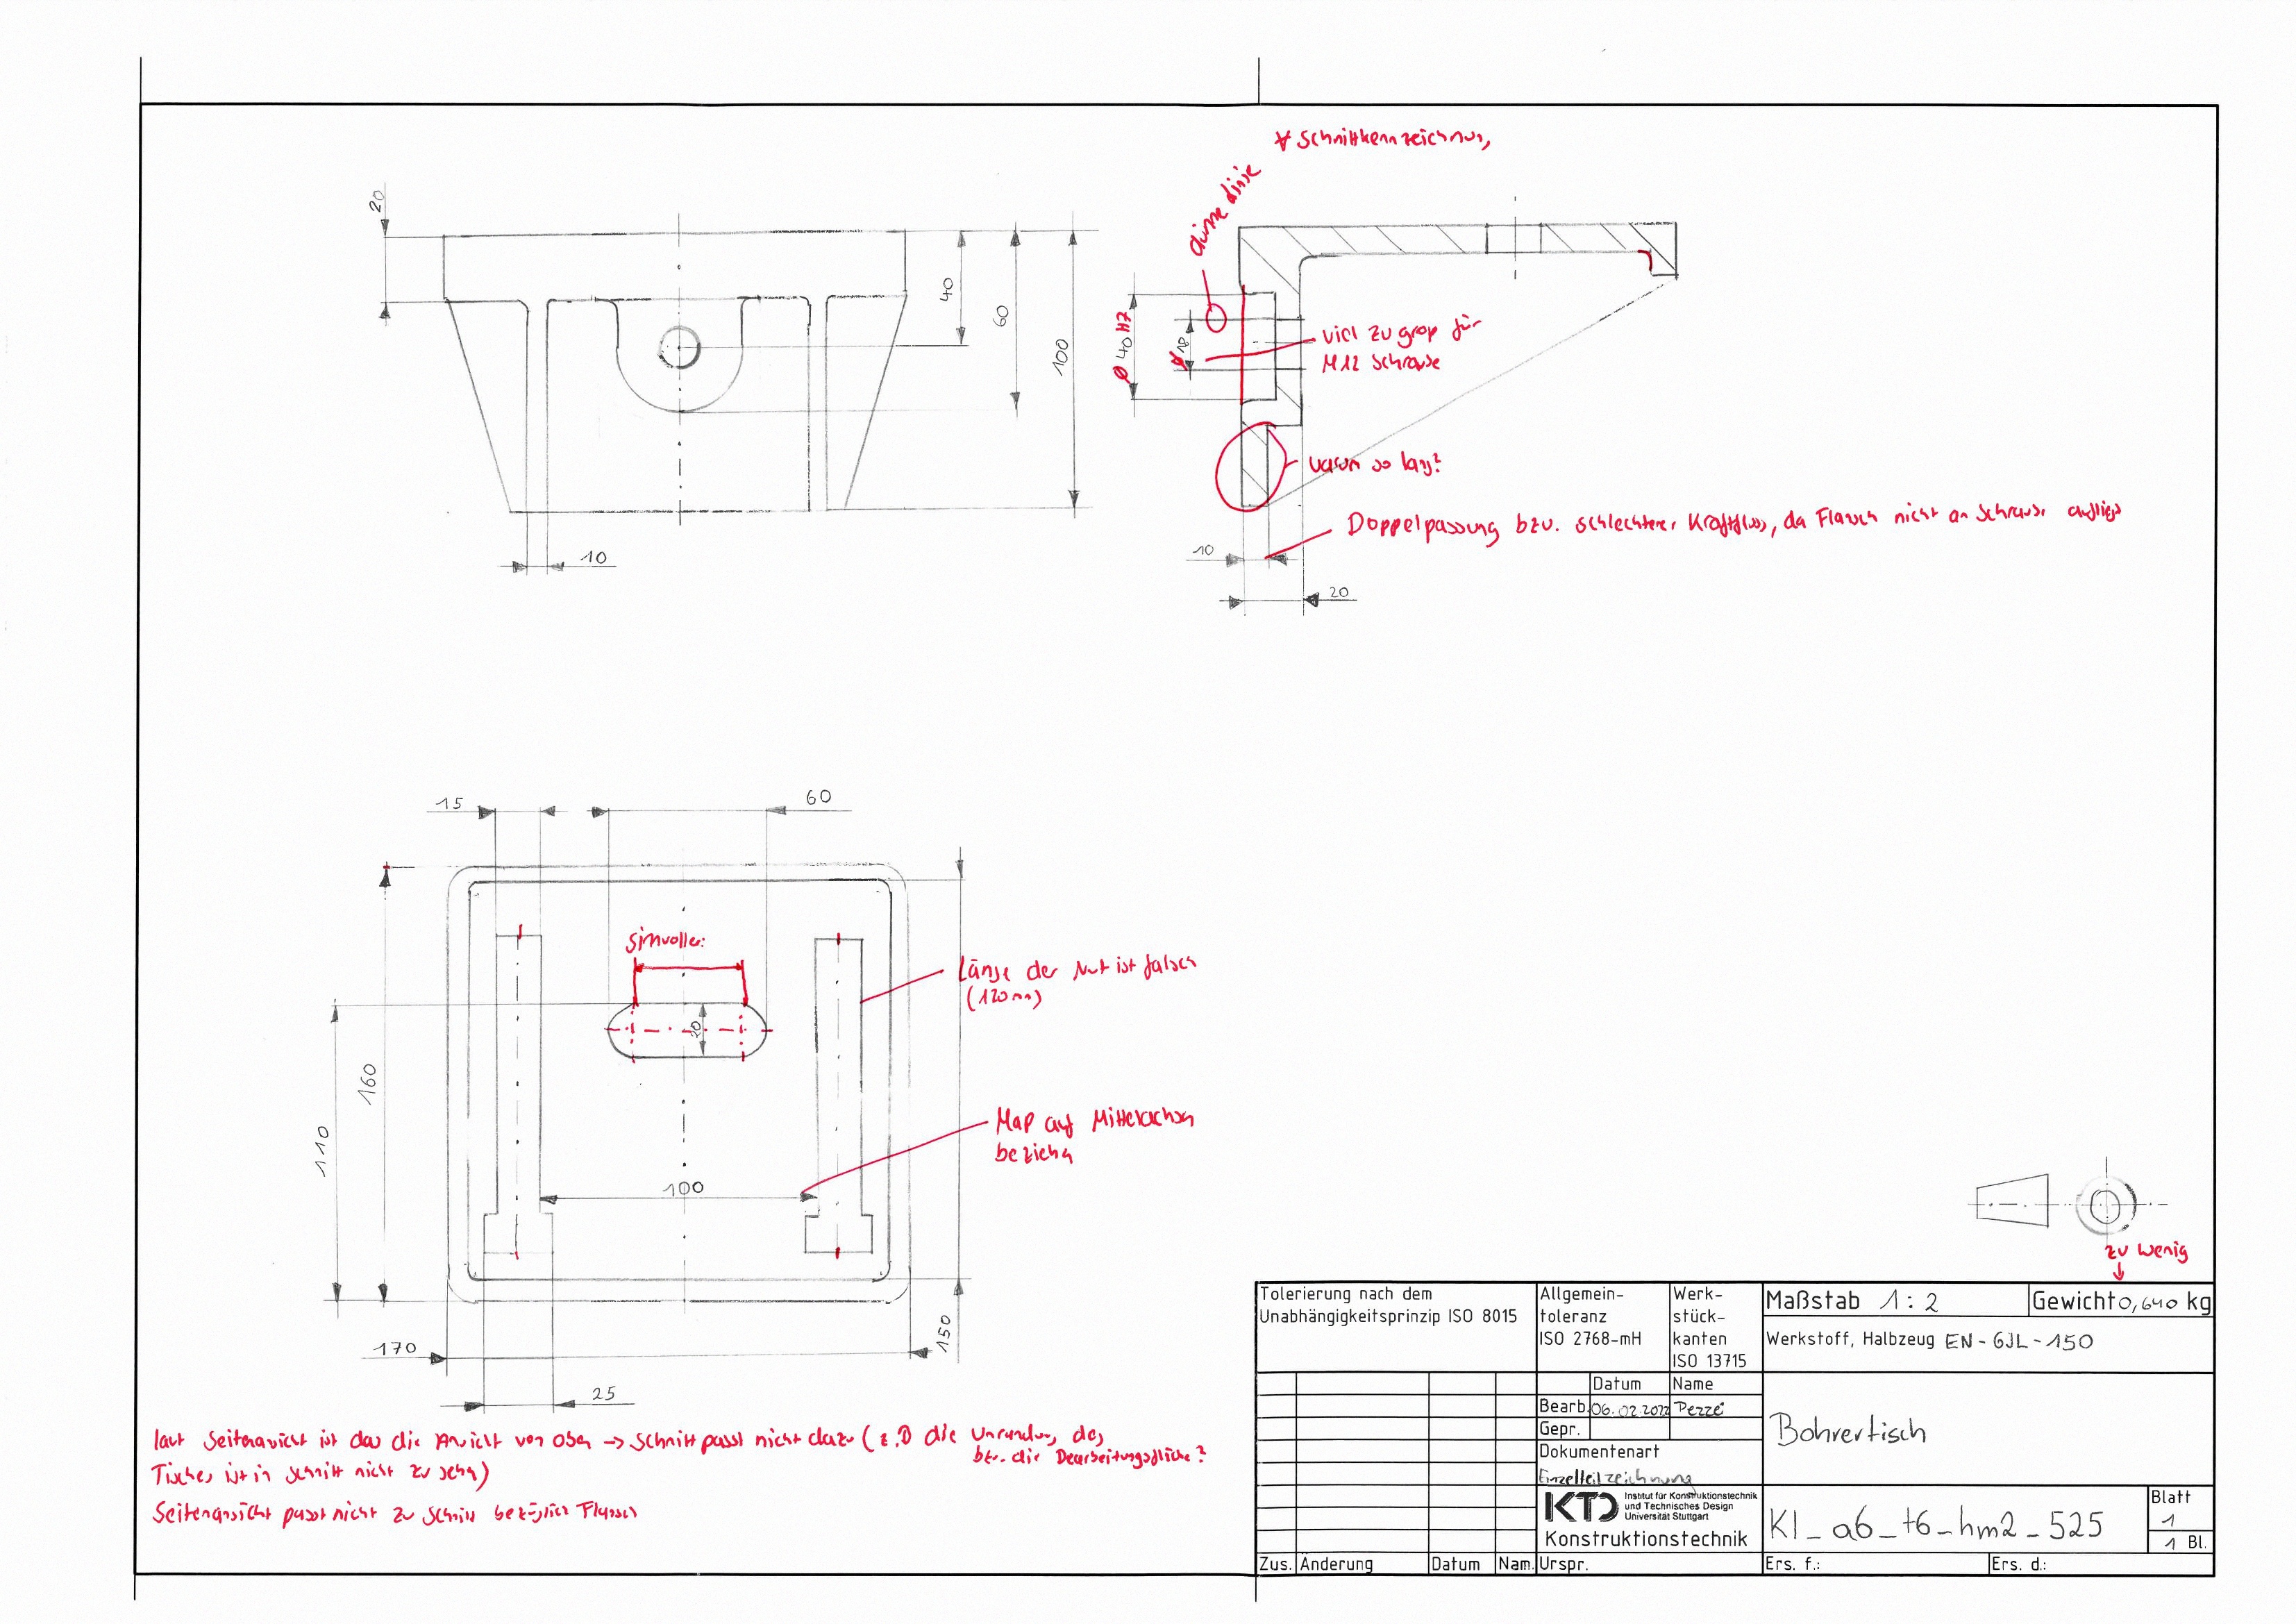 ∀ Schnittkennzeichnung
dünne Linie
20
40
60
100
10
Ø 40 H7
18
viel zu groß für
M12 Schraube
warum so lang?
Doppelpassung bzw. schlechterer Kraftfluss, da Flansch nicht an Schraube aufliegt
10
20
15
60
sinnvoller:
20
Länge der Nut ist falsch
(120mm)
160
110
Maß auf Mittelachsen
beziehen
100
150
170
25
laut Seitenansicht ist das die Ansicht von oben -> Schnitt passt nicht dazu (z.B die Umrandung des
bzw. die Bearbeitungsfläche?
Tisches ist in Schnitt nicht zu sehen)
Seitenansicht passt nicht zu Schnitt bezüglich Flansch
zu wenig
Tolerierung nach dem
Unabhängigkeitsprinzip ISO 8015
Allgemein-
toleranz
ISO 2768-mH
Werk-
stück-
kanten
ISO 13715
Maßstab 1:2
Gewicht 0,640 kg
Werkstoff, Halbzeug EN-GJL-150
Datum Name
Bearb. 06.02.2022
Gepr.
Dokumentenart
Einzelteilzeichnung
Bohrertisch
KTD Institut für Konstruktionstechnik
und Technisches Design
Universität Stuttgart
Konstruktionstechnik
Kl_a6_t6_hm2_525
Blatt
1
1 Bl.
Zus. Änderung Datum Nam. Urspr. Ers. f.: Ers. d.: